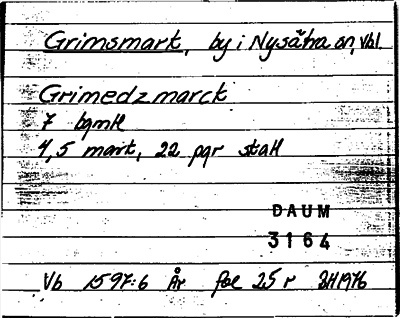 Grimsmark, by i Nysätra sn, Vbl.
Grimedzmarck
7 bqmH
4,5 mark, 22 pqr stall
DAUM
3164
Vb 1597:6 År fol 25r SH1976